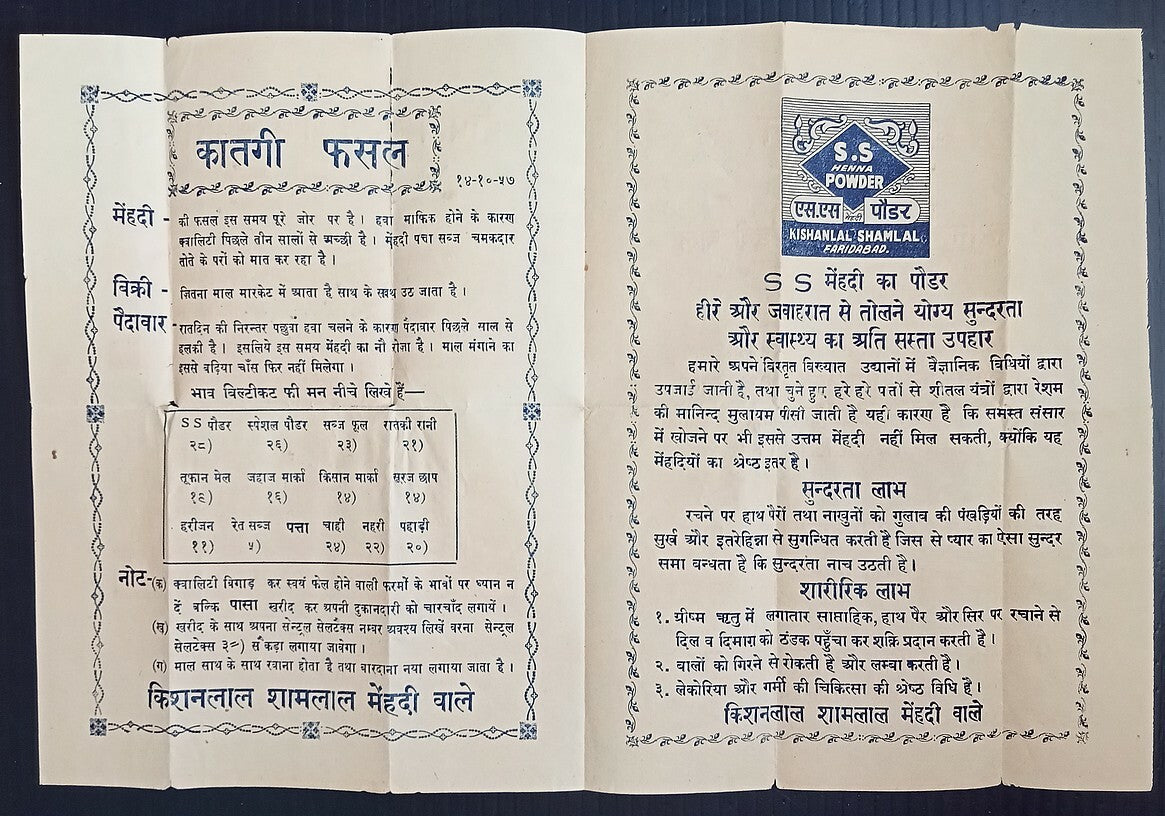 कातगी फसल
१४-१०-५७
मेंहदी - की फसल इस समय पूरे जोर पर है। हवा माफिक होने के कारण
क्वालिटी पिछले तीन सालों से अच्छी है। मेंहदी पत्ता सब्ज चमकदार
तोते के परों को मात कर रहा है।
विक्री - जितना माल मारकेट में आता है साथ के साथ उठ जाता है।
पैदावार - रातदिन की निरन्तर पछुवा हवा चलने के कारण पैदावार पिछले साल से
हलकी है। इसलिये इस समय मेंहदी का नौ रोजा है। माल मंगाने का
इससे बढ़िया चाँस फिर नहीं मिलेगा।
भाव विल्टीकट फी मन नीचे लिखे हैं—
S S पौडर स्पेशल पौडर सब्ज फूल रातकी रानी
२८) २६) २३) २१)
तूफान मेल जहाज मार्का किसान मार्का सूरज छाप
१९) १६) १४) १४)
हरीजन रेत सब्ज पत्ता चाही नहरी पहाड़ी
११) ५) २४) २२) २०)
नोट-(क) क्वालिटी विगाड़ कर स्वयं फेल होने वाली फरमों के भावों पर ध्यान न
दें बल्कि पासा खरीद कर अपनी दुकानदारी को चारचाँद लगायें।
(ख) खरीद के साथ अपना सेन्ट्रल सेलटैक्स नम्बर अवश्य लिखें वरना सेन्ट्रल
सेलटेक्स सैकड़ा लगाया जावेगा।
(ग) माल साथ के साथ रवाना होता है तथा बारदाना नया लगाया जाता है।
किशनलाल शामलाल मेंहदी वाले
S.S
HENNA
POWDER
एस.एस मेंहदी पौडर
KISHANLAL SHAMLAL
FARIDABAD.
S S मेंहदी का पौडर
हीरे और जवाहरात से तोलने योग्य सुन्दरता
और स्वास्थ्य का अति सस्ता उपहार
हमारे अपने विस्तृत विख्यात उद्यानों में वैज्ञानिक विधियों द्वारा
उपजाई जाती है, तथा चुने हुए हरे हरे पत्तों से शीतल यंत्रों द्वारा रेशम
की मानिन्द मुलायम पीसी जाती है यही कारण है कि समस्त संसार
में खोजने पर भी इससे उत्तम मेंहदी नहीं मिल सकती, क्योंकि यह
मेंहदियों का श्रेष्ठ इतर है।
सुन्दरता लाभ
रचने पर हाथ पैरों तथा नाखुनों को गुलाब की पंखड़ियों की तरह
सुर्ख और इतरेहिन्ना से सुगन्धित करती है जिस से प्यार का ऐसा सुन्दर
समा बन्धता है कि सुन्दरता नाच उठती है।
शारीरिक लाभ
१. ग्रीष्म ऋतु में लगातार साप्ताहिक, हाथ पैर और सिर पर रचाने से
दिल व दिमाग़ को ठंडक पहुँचा कर शक्ति प्रदान करती है।
२. बालों को गिरने से रोकती है और लम्बा करती है।
३. लेकोरिया और गर्मी की चिकित्सा की श्रेष्ठ विधि है।
किशनलाल शामलाल मेंहदी वाले